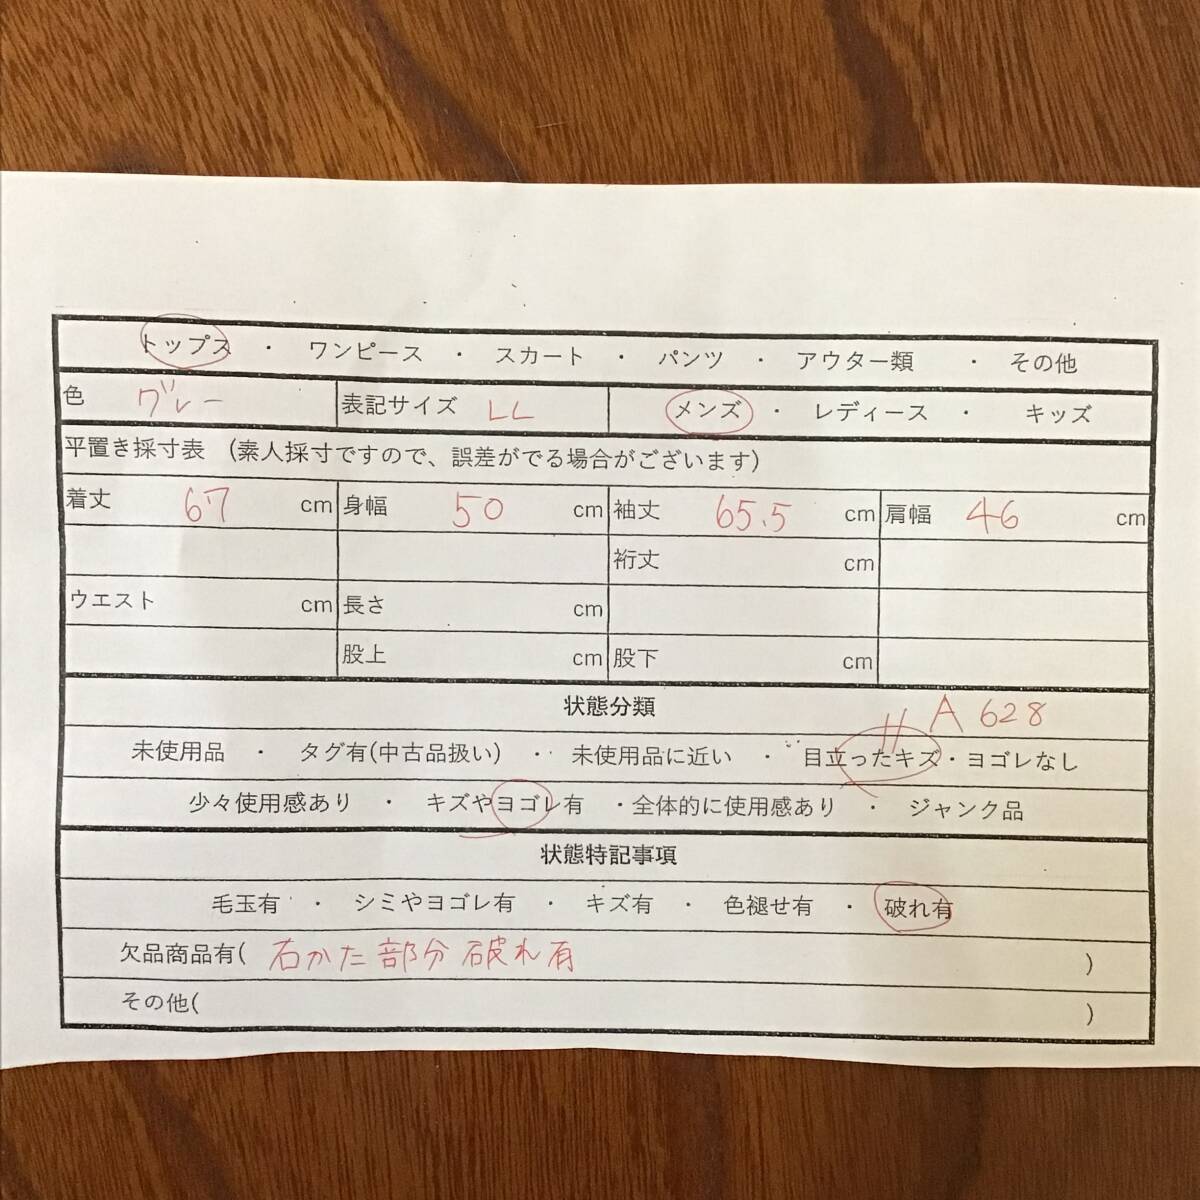 トップス ・ ワンピース ・ スカート ・ パンツ ・ アウター類 ・ その他
色 グレー 表記サイズ LL メンズ ・ レディース ・ キッズ
平置き採寸表 (素人採寸ですので、誤差がでる場合がございます)
着丈 67 cm 身幅 50 cm 袖丈 65.5 cm 肩幅 46 cm
裄丈 cm
ウエスト cm 長さ cm
股上 cm 股下 cm
状態分類
A 628
未使用品 ・ タグ有(中古品扱い) ・ 未使用品に近い ・ 目立ったキズ・ヨゴレなし
少々使用感あり ・ キズやヨゴレ有 ・全体的に使用感あり ・ ジャンク品
状態特記事項
毛玉有 ・ シミやヨゴレ有 ・ キズ有 ・ 色褪せ有 ・ 破れ有
欠品商品有( 右かた部分 破れ有 )
その他( )